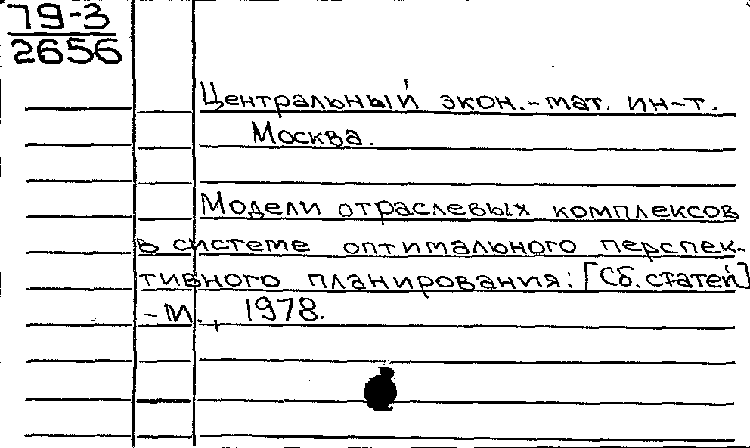 79-3
2656
Центральный экон.-мат. ин-т.
Москва.
Модели отраслевых комплексов
в системе оптимального перспек-
тивного планирования: [Сб. статей]
- М., 1978.